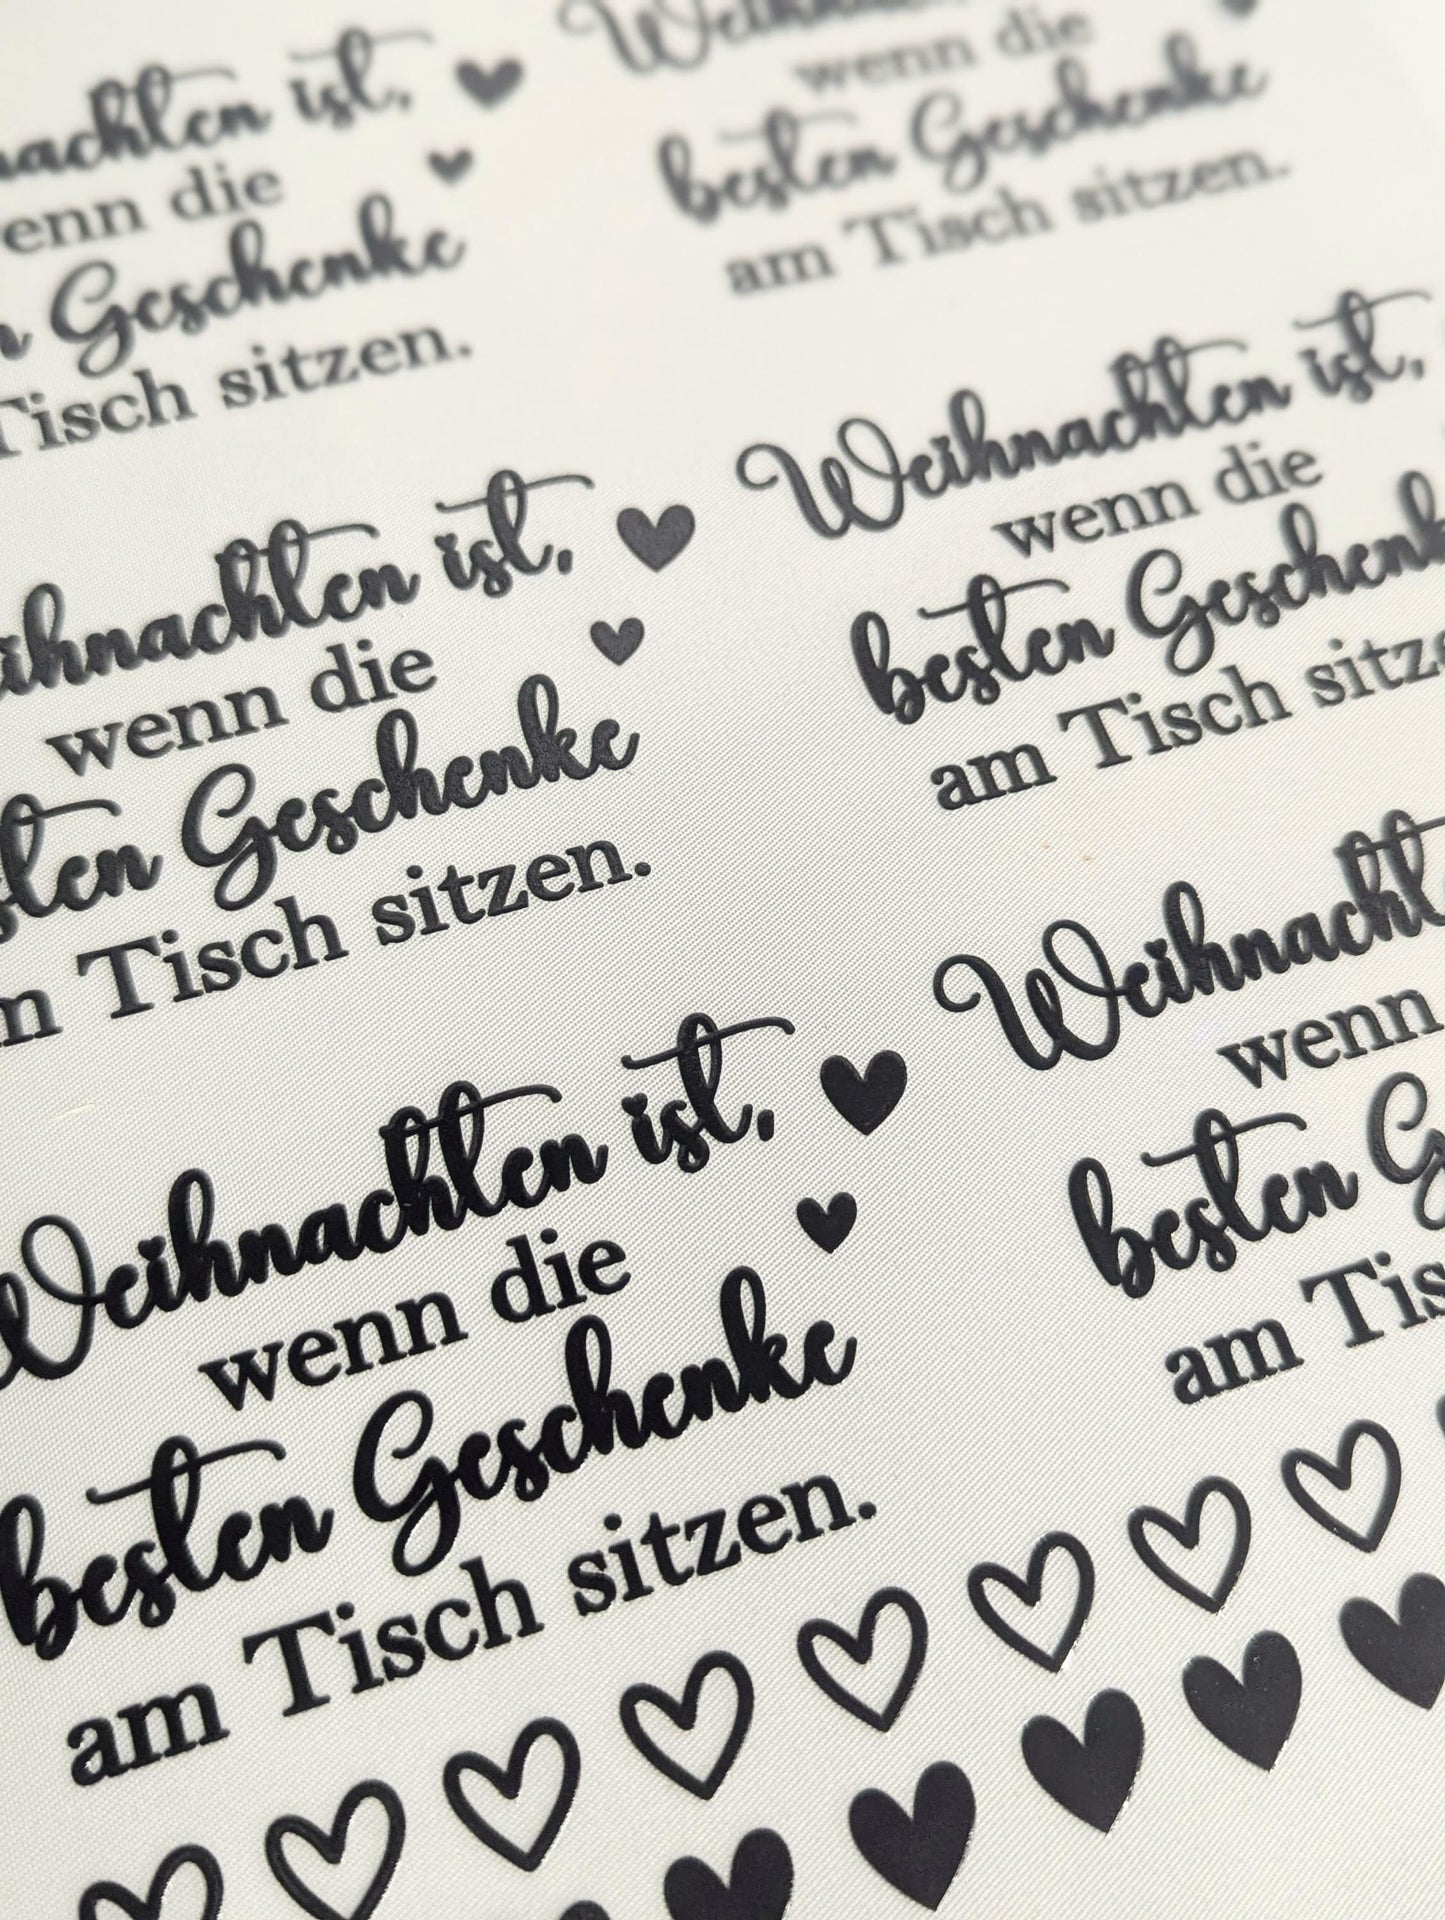 nachten ist,
enn die
n Geschenke
Tisch sitzen.
Weihnachten
wenn die
besten Geschenke
am Tisch sitzen.
eihnachten ist,
wenn die
sten Geschenke
m Tisch sitzen.
Weihnachten ist,
wenn die
besten Geschenk
am Tisch sitze
Weihnachten ist,
wenn die
besten Geschenke
am Tisch sitzen.
Weihnacht
wenn
besten G
am Tis